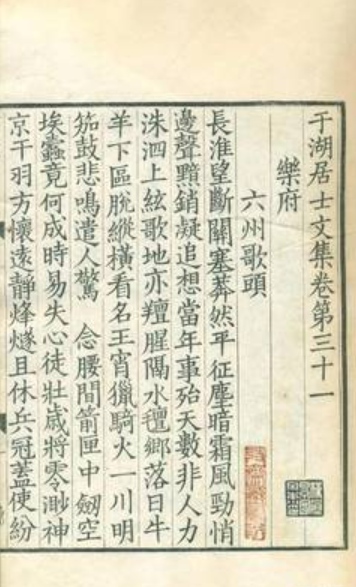 于湖居士文集卷第三十一
樂府
六州歌頭
長淮望斷關塞莽然平征塵暗霜風勁悄
邊聲黯銷凝追想當年事殆天數非人力
洙泗上絃歌地亦羶腥隔水氊鄉落日牛
羊下區脫縱橫看名王宵獵騎火一川明
笳鼓悲鳴遣人驚 念腰間箭匣中劒空
埃蠹竟何成時易失心徒壯歲將零渺神
京干羽方懷遠靜烽燧且休兵冠蓋使紛